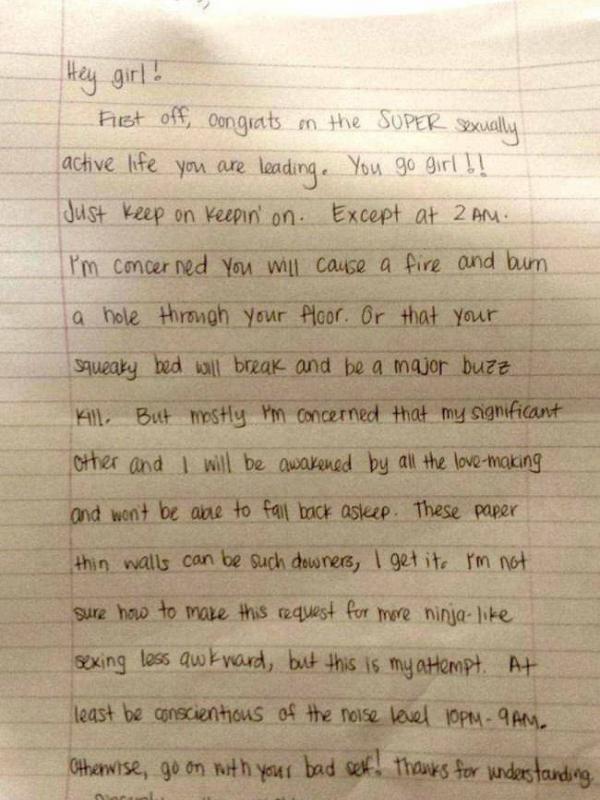 Hey girl!
First off, congrats on the SUPER sexually
active life you are leading. You go girl!!
Just keep on keepin' on. Except at 2 AM.
I'm concerned you will cause a fire and burn
a hole through your floor. Or that your
squeaky bed will break and be a major buzz
kill. But mostly I'm concerned that my significant
other and I will be awakened by all the love-making
and won't be able to fall back asleep. These paper
thin walls can be such downers, I get it. I'm not
sure how to make this request for more ninja-like
sexing less awkward, but this is my attempt. At
least be conscientious of the noise level 10PM-9AM.
Otherwise, go on with your bad self! Thanks for understanding.